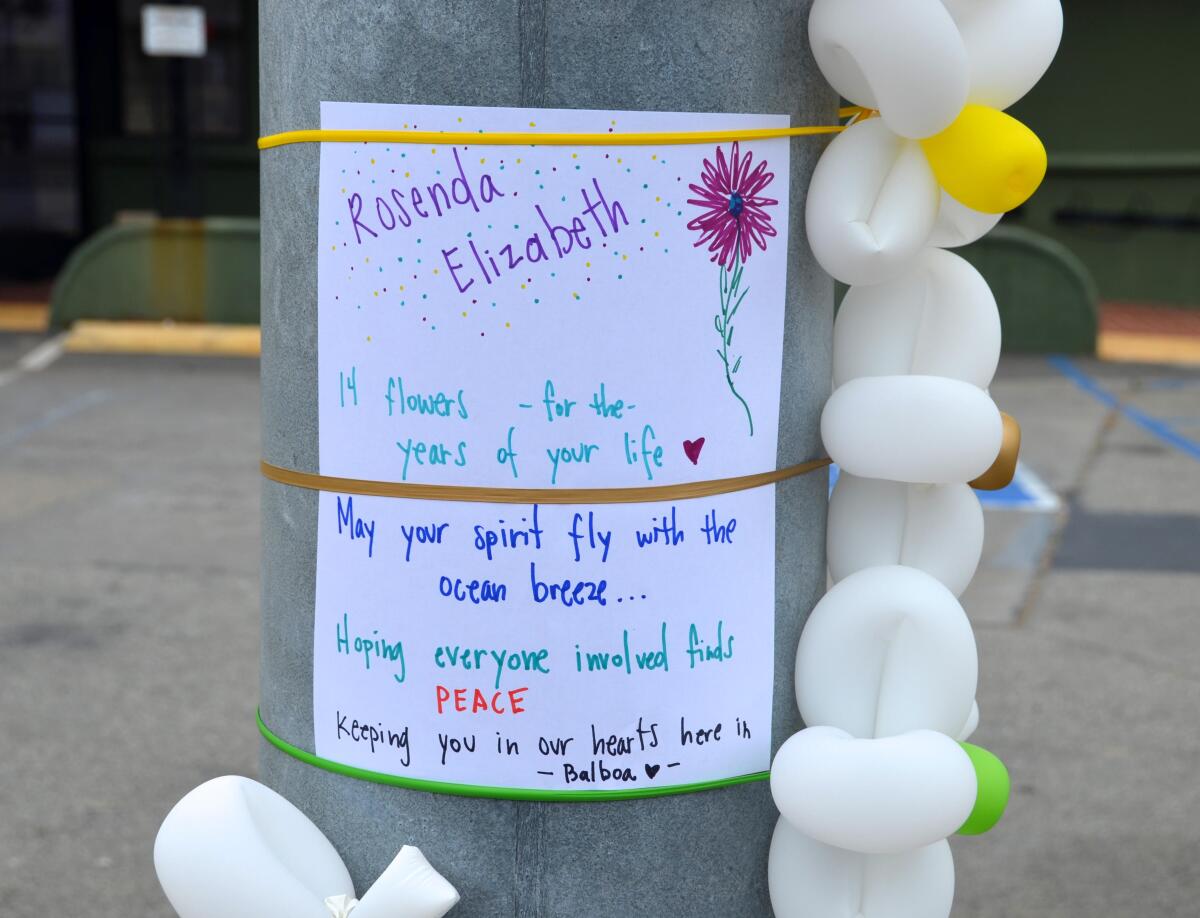 Rosenda
Elizabeth
14 flowers - for the -
years of your life ♥
May your spirit fly with the
ocean breeze...
Hoping everyone involved finds
PEACE
Keeping you in our hearts here in
- Balboa ♥ -